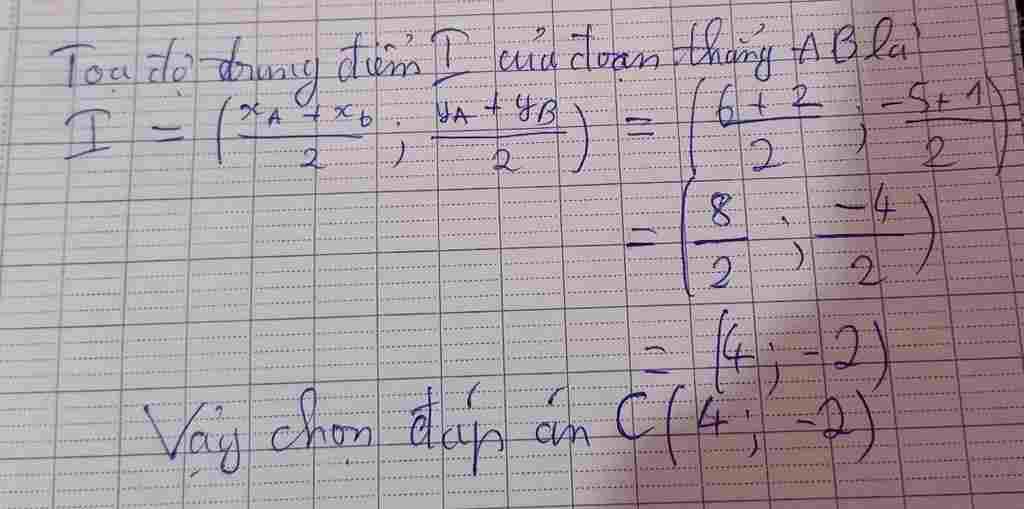 Toạ độ trung điểm I của đoạn thẳng AB là
I = (xA + xb / 2 ; yA + yB / 2) = (6 + 2 / 2 ; -5 + 1 / 2)
= (8 / 2 ; -4 / 2)
= (4 ; -2)
Vậy chọn đáp án C (4 ; -2)